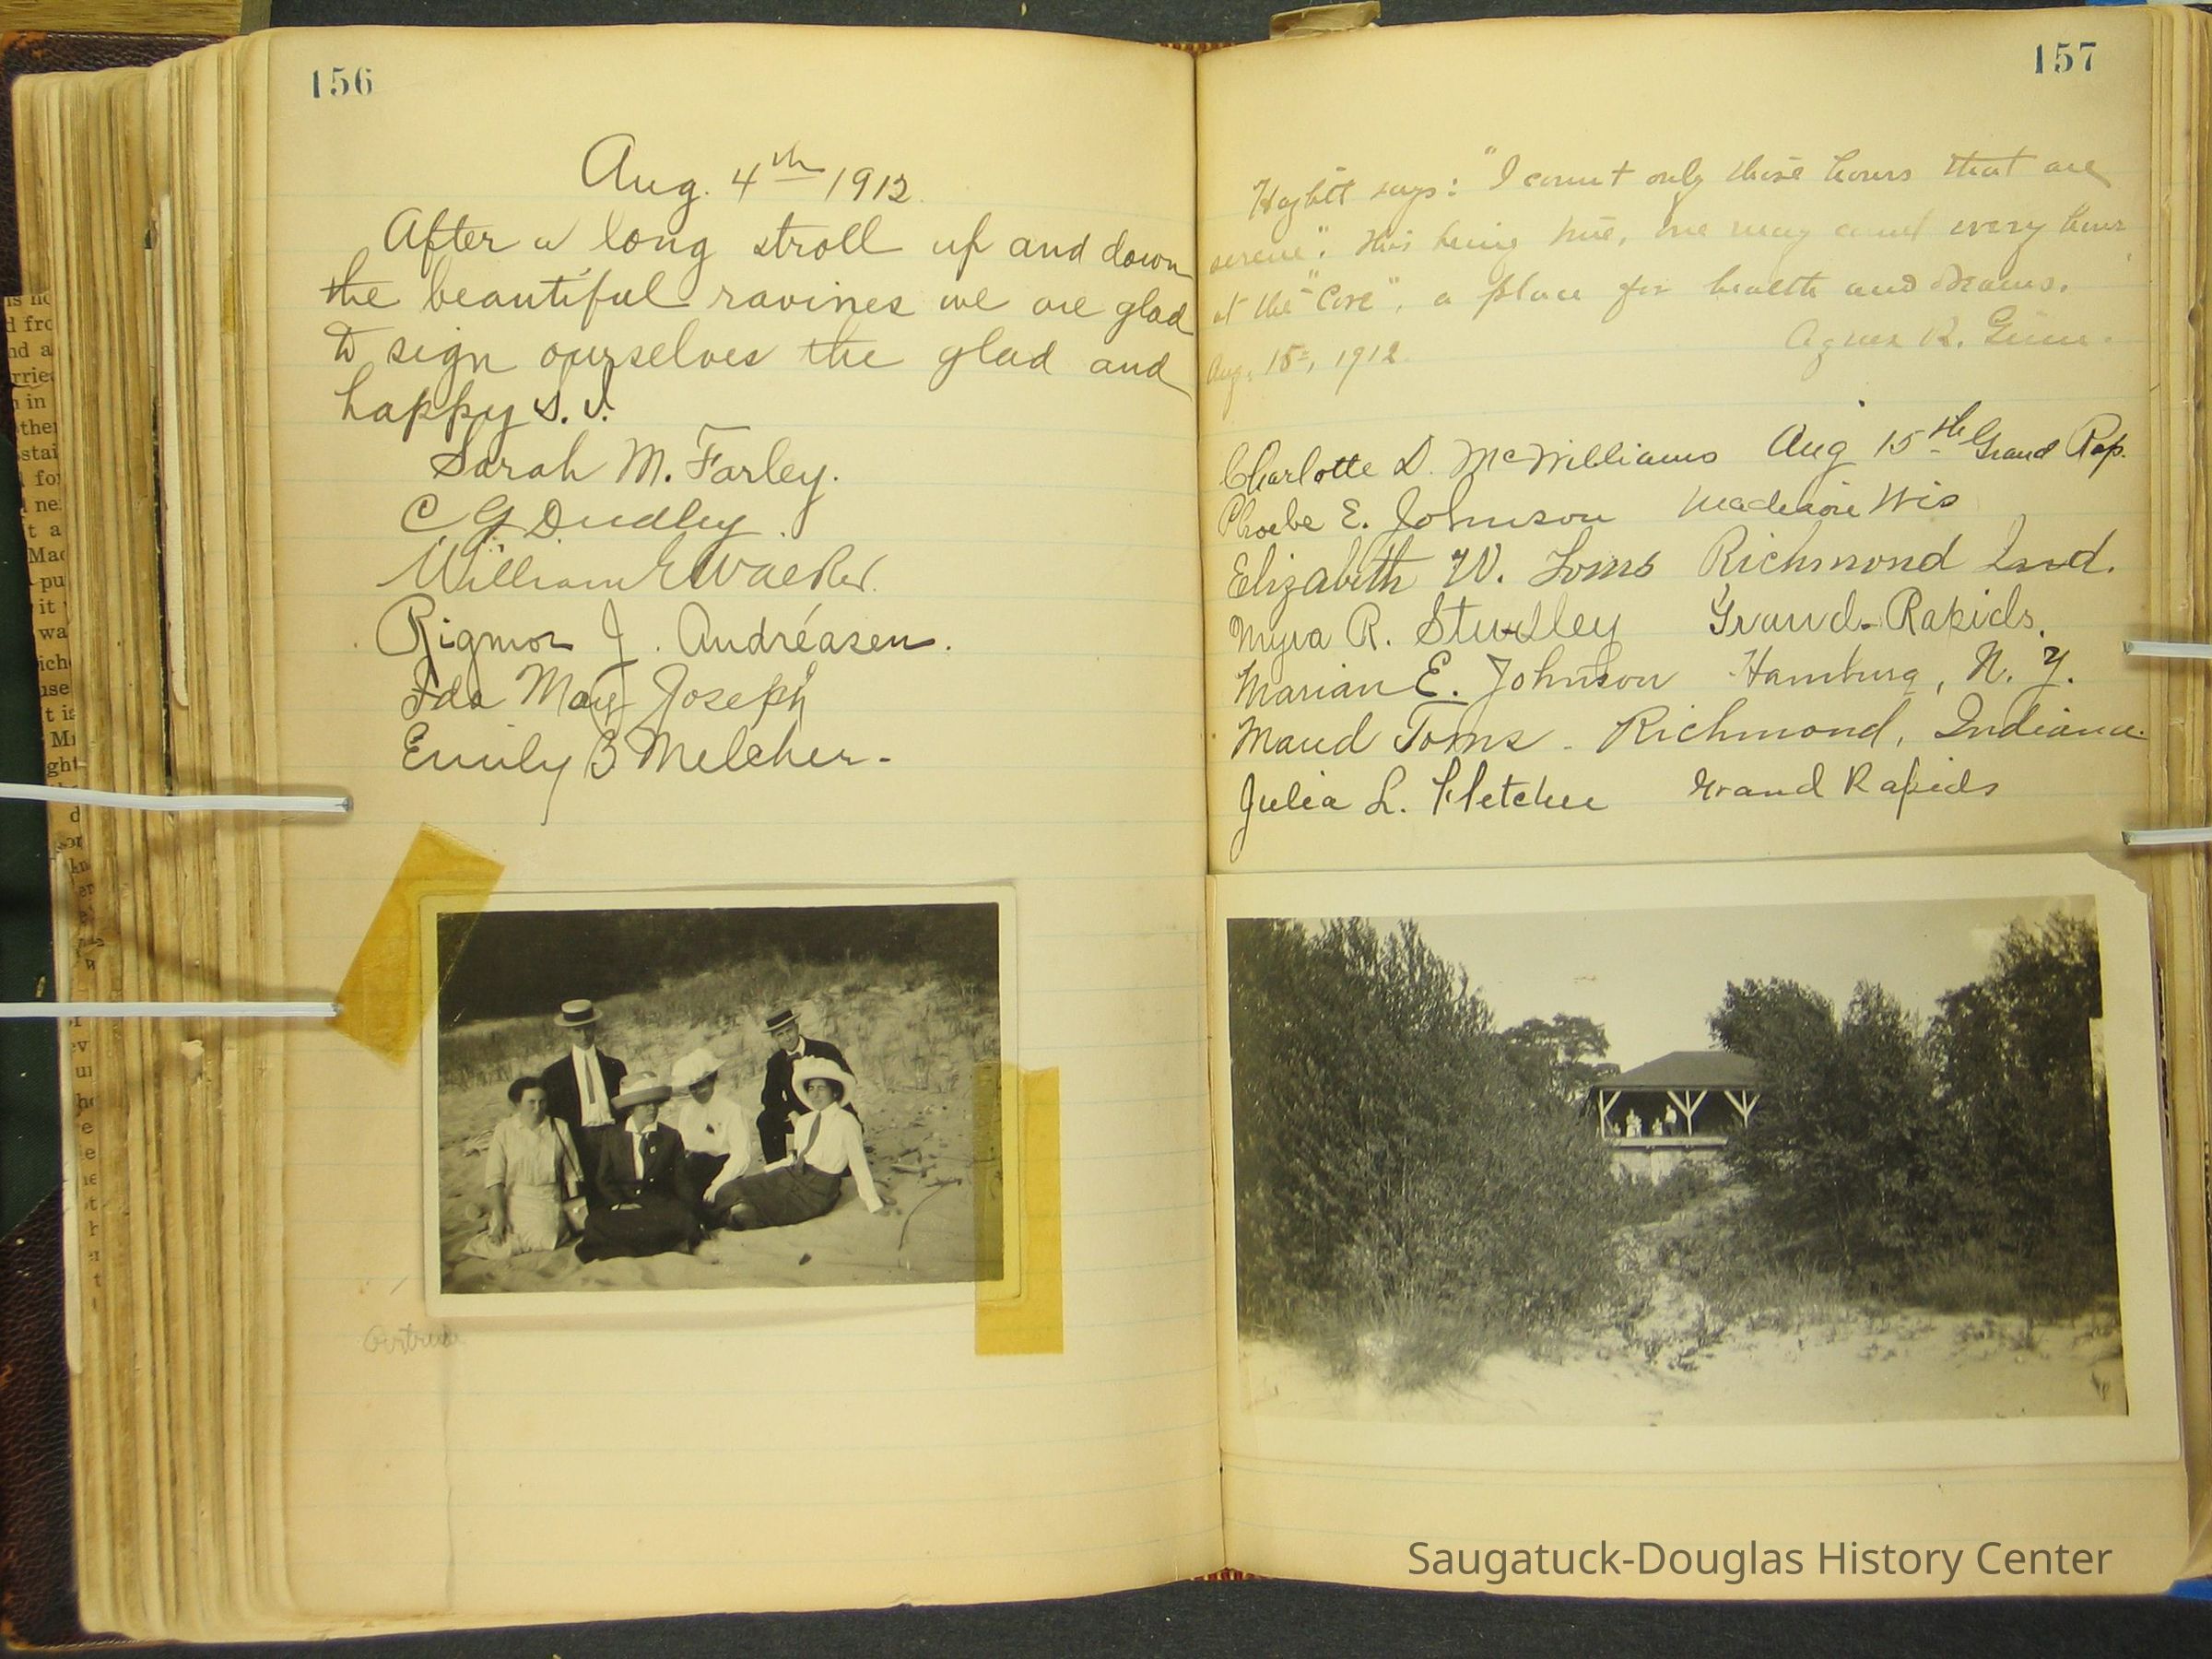 156
Aug. 4th 1912.
After a long stroll up and down
the beautiful ravines we are glad
to sign ourselves the glad and
happy S. J.
Sarah M. Farley.
C G Dudley.
William E Walker.
Rigmor J. Andreasen.
Ida May Joseph
Emily B Melcher.
157
Hazlitt says: "I count only those hours that are
serene". This being true, one may count every hour
at the "Cove", a place for health and dreams.
Agnes R. Ginn.
Aug. 15=, 1912.
Charlotte D. McWilliams Aug 15th Grand Rap.
Phoebe E. Johnson Madison Wis
Elizabeth W. Toms Richmond Ind.
Myra R. Studley Grand-Rapids.
Marian E. Johnson Hamburg, N. Y.
Maud Toms - Richmond, Indiana.
Julia L. Fletcher Grand Rapids
Saugatuck-Douglas History Center